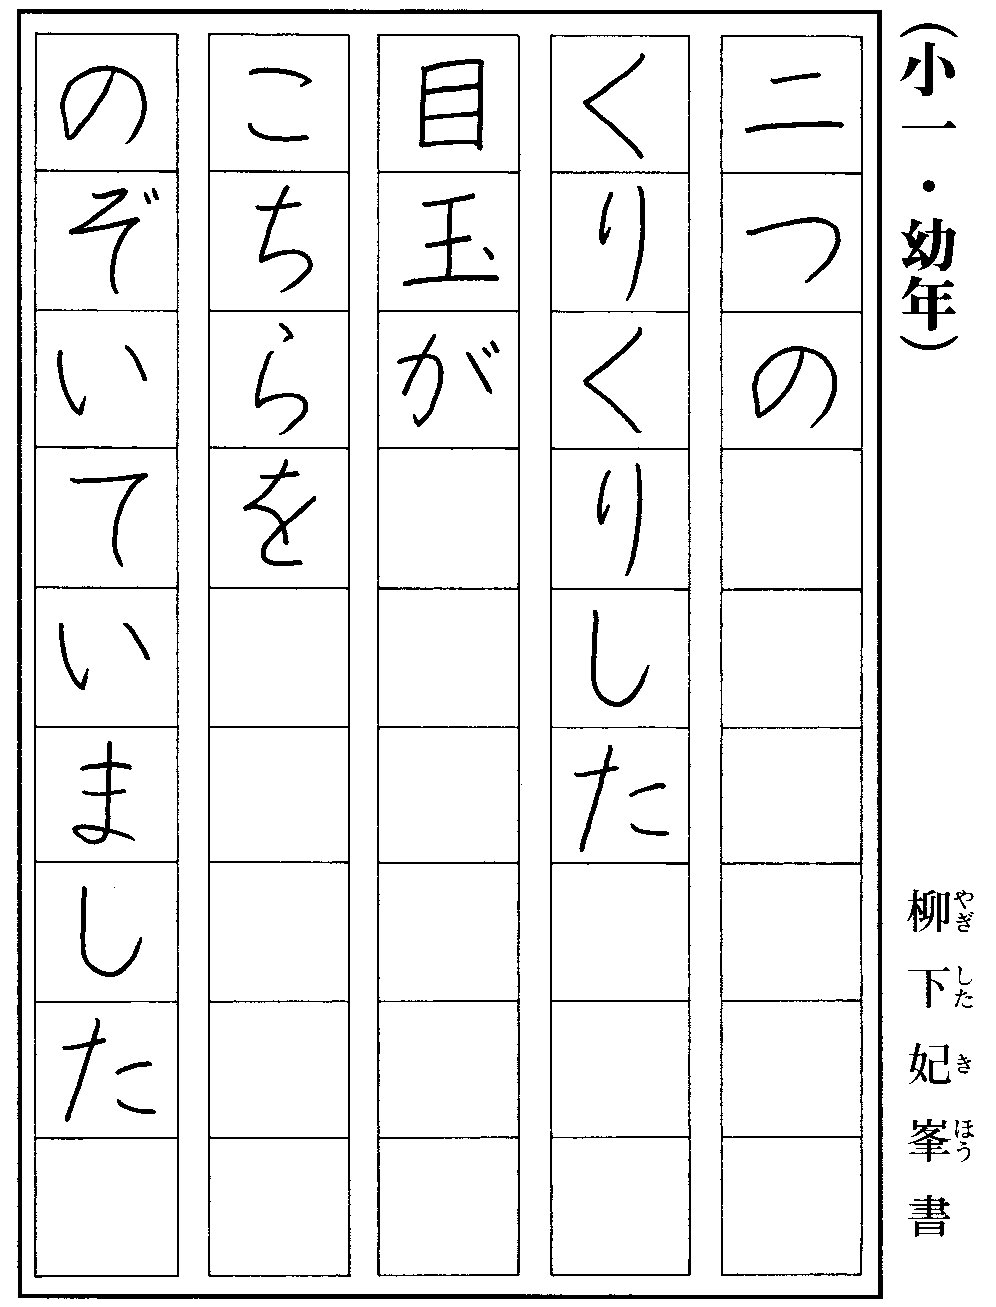 （小一・幼年）
柳下妃峯書
やぎしたきほう
二つの
くりくりした
目玉が
こちらを
のぞいていました